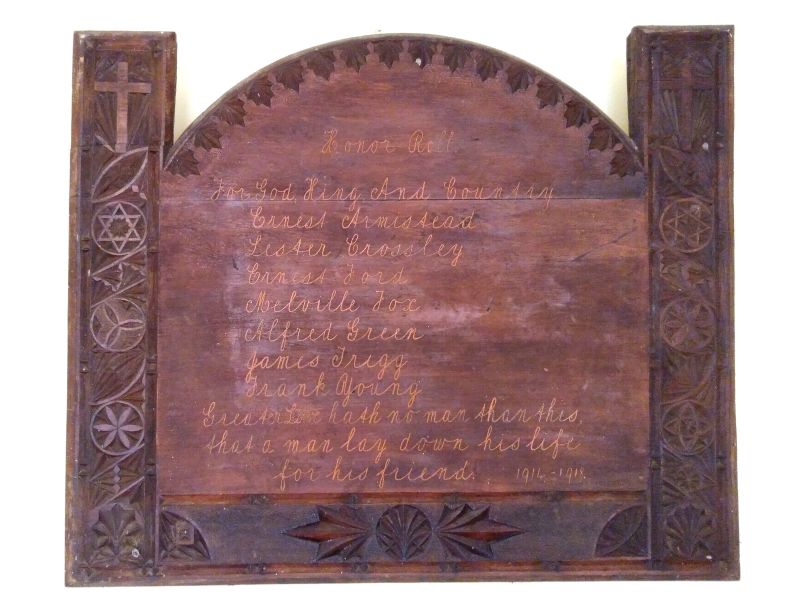 Honor Roll.
For God, King, And Country
Ernest Armistead
Lester Crossley
Ernest Ford
Melville Fox
Alfred Green
James Trigg
Frank Young
Greater Love hath no man than this,
that a man lay down his life
for his friend. 1914-1918.